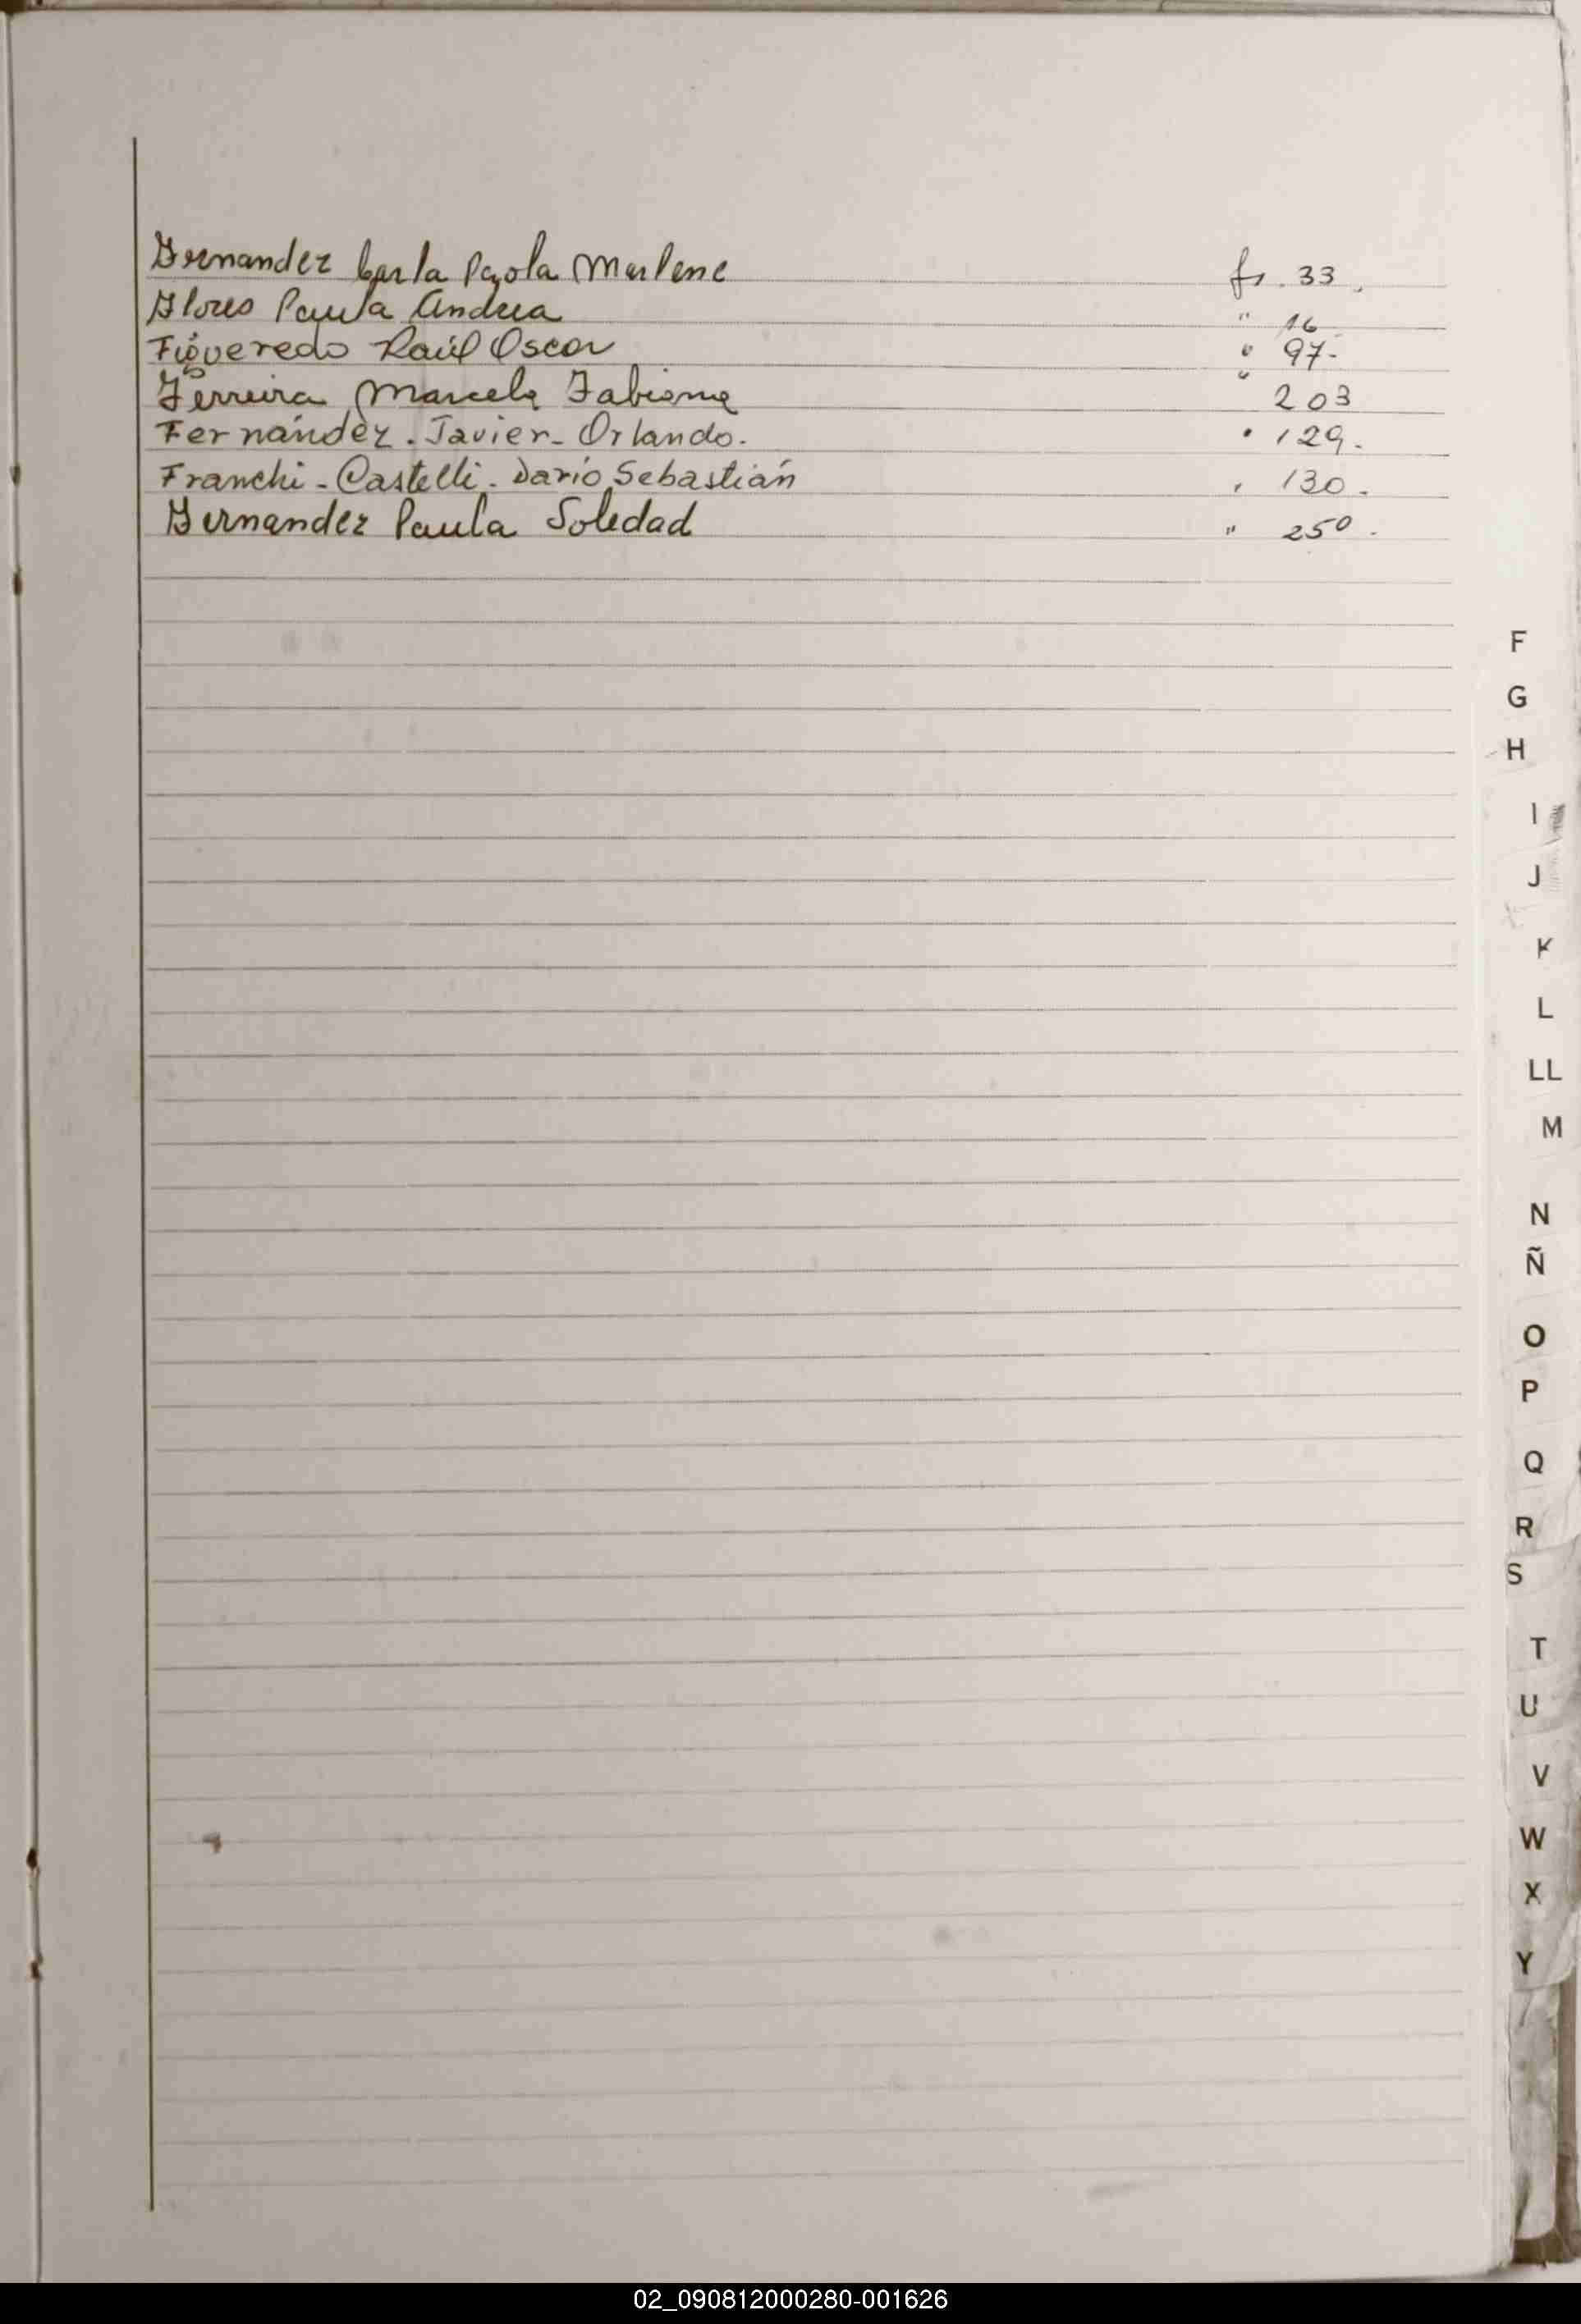 Fernandez Carla Paola Marlene fs. 33.
Flores Paula Andrea " 16
Figueredo Raúl Oscar " 97-
Ferreira Marcela Fabiana " 203
Fernández. Javier- Orlando. " 129.
Franchi-Castelli. Darío Sebastián " 130.
Fernandez Paula Soledad " 250.
F
G
H
I
J
K
L
LL
M
N
Ñ
O
P
Q
R
S
T
U
V
W
X
Y
02_090812000280-001626